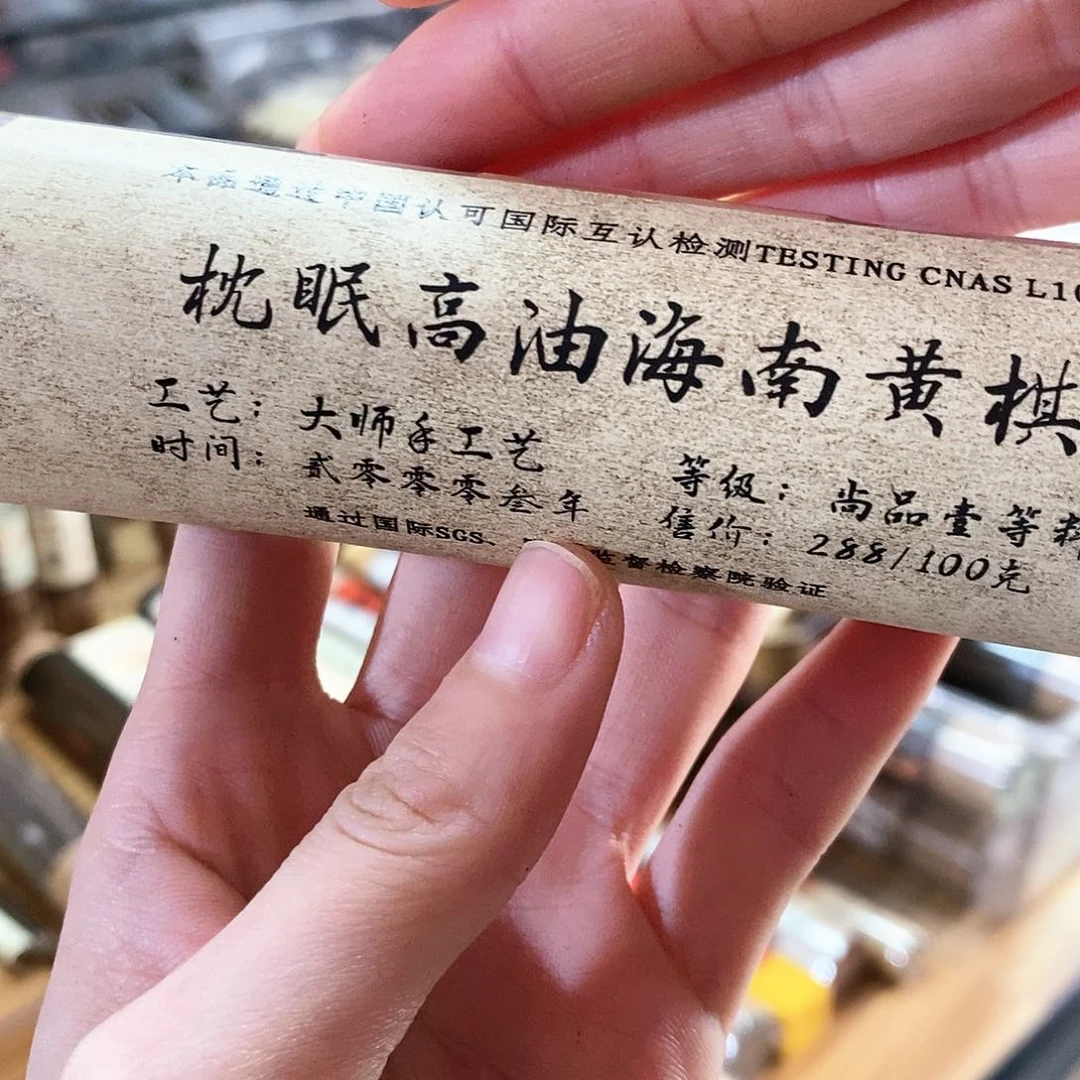 本香通过中国认可国际互认检测TESTING CNAS L10
枕眠高油海南黄棋
工艺：大师手工艺
时间：贰零零零叁年
等级：尚品壹等料
售价：288/100克
通过国际SGS、监督检察院验证